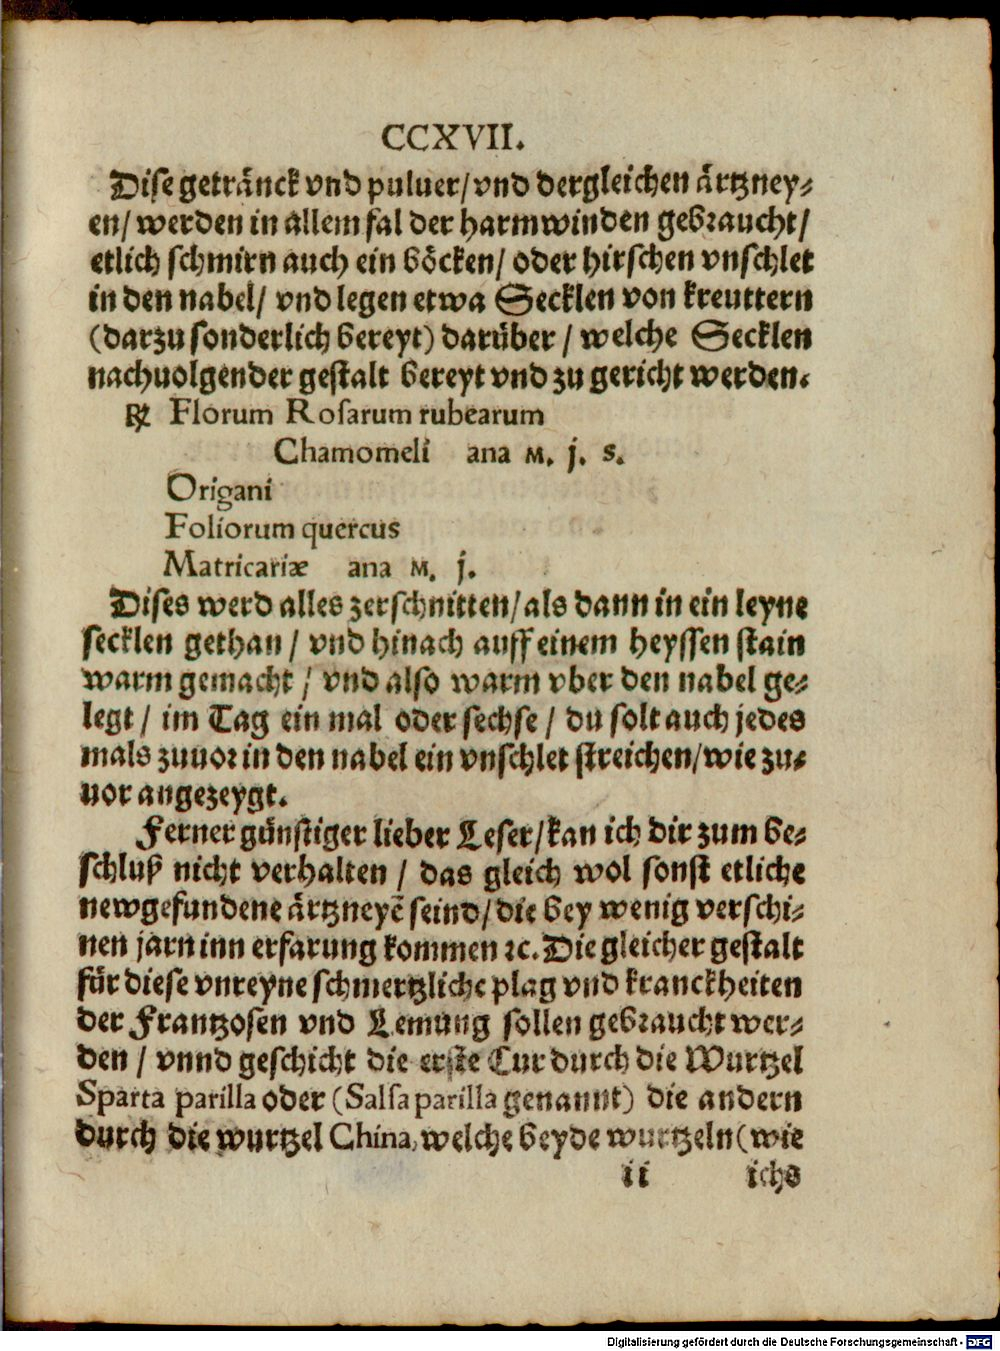 CCXVII.
Dise getränck vnd puluer/ vnd dergleichen ärtzney⸗
en/ werden in allem fal der harmwinden gebraucht/
etlich schmirn auch ein böcken/ oder hirschen vnschlet
in den nabel/ vnd legen etwa Secklen von kreuttern
(darzu sonderlich bereyt) darüber / welche Secklen
nachuolgender gestalt bereyt vnd zu gericht werden.
℞ Florum Rosarum rubearum
Chamomeli ana M. j. s.
Origani
Foliorum quercus
Matricariæ ana M. j.
Dises werd alles zerschnitten/ als dann in ein leyne
secklen gethan / vnd hinach auff einem heyssen stain
warm gemacht / vnd also warm vber den nabel ge⸗
legt / im Tag ein mal oder sechse / du solt auch jedes
mals zuuor in den nabel ein vnschlet streichen/ wie zu⸗
uor angezeygt.
Ferner günstiger lieber Leser/ kan ich dir zum be⸗
schluß nicht verhalten / das gleich wol sonst etliche
newgefundene ärtzneyẽ seind/ die bey wenig verschi⸗
nen jarn inn erfarung kommen ꝛc. Die gleicher gestalt
für diese vnreyne schmertzliche plag vnd kranckheiten
der Frantzosen vnd Lemung sollen gebraucht wer⸗
den / vnnd geschicht die erste Cur durch die Wurtzel
Sparta parilla oder (Salsa parilla genannt) die andern
durch die wurtzel China, welche beyde wurtzeln (wie
ii ichs
Digitalisierung gefördert durch die Deutsche Forschungsgemeinschaft - DFG